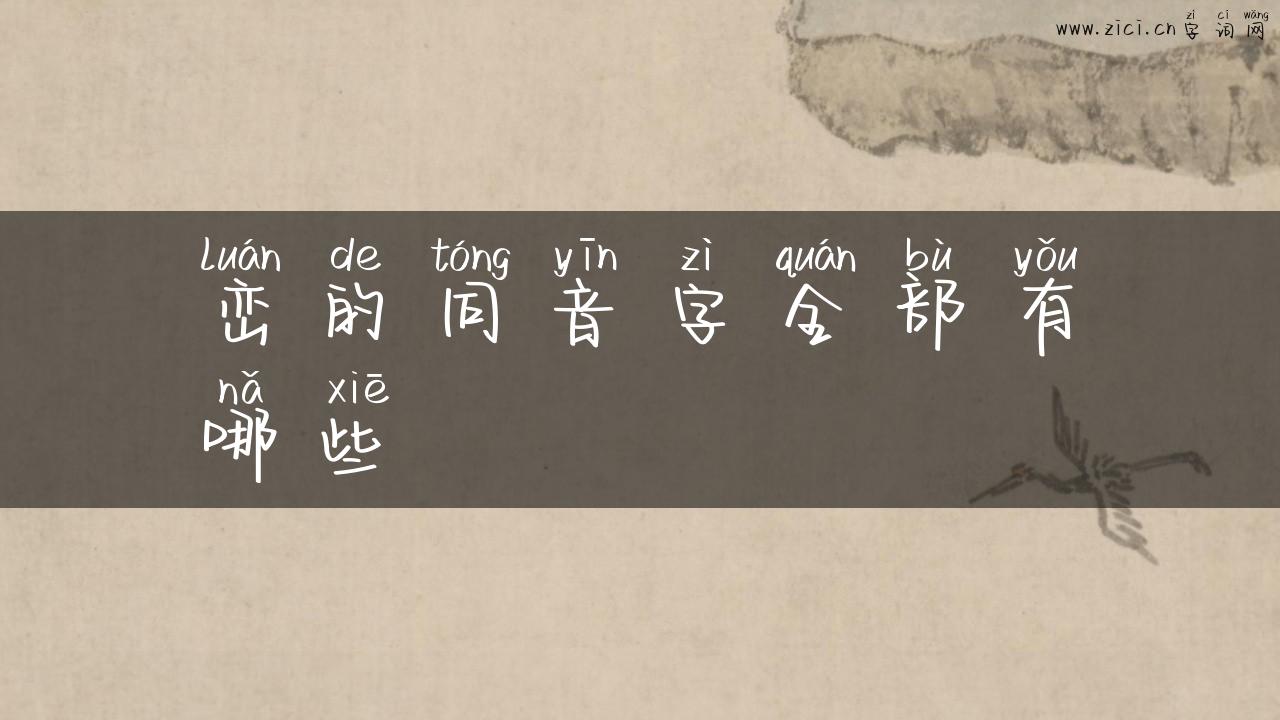 zì cí wǎng
www.zici.cn 字 词 网
luán de tóng yīn zì quán bù yǒu
峦 的 同 音 字 全 部 有
nǎ xiē
哪 些